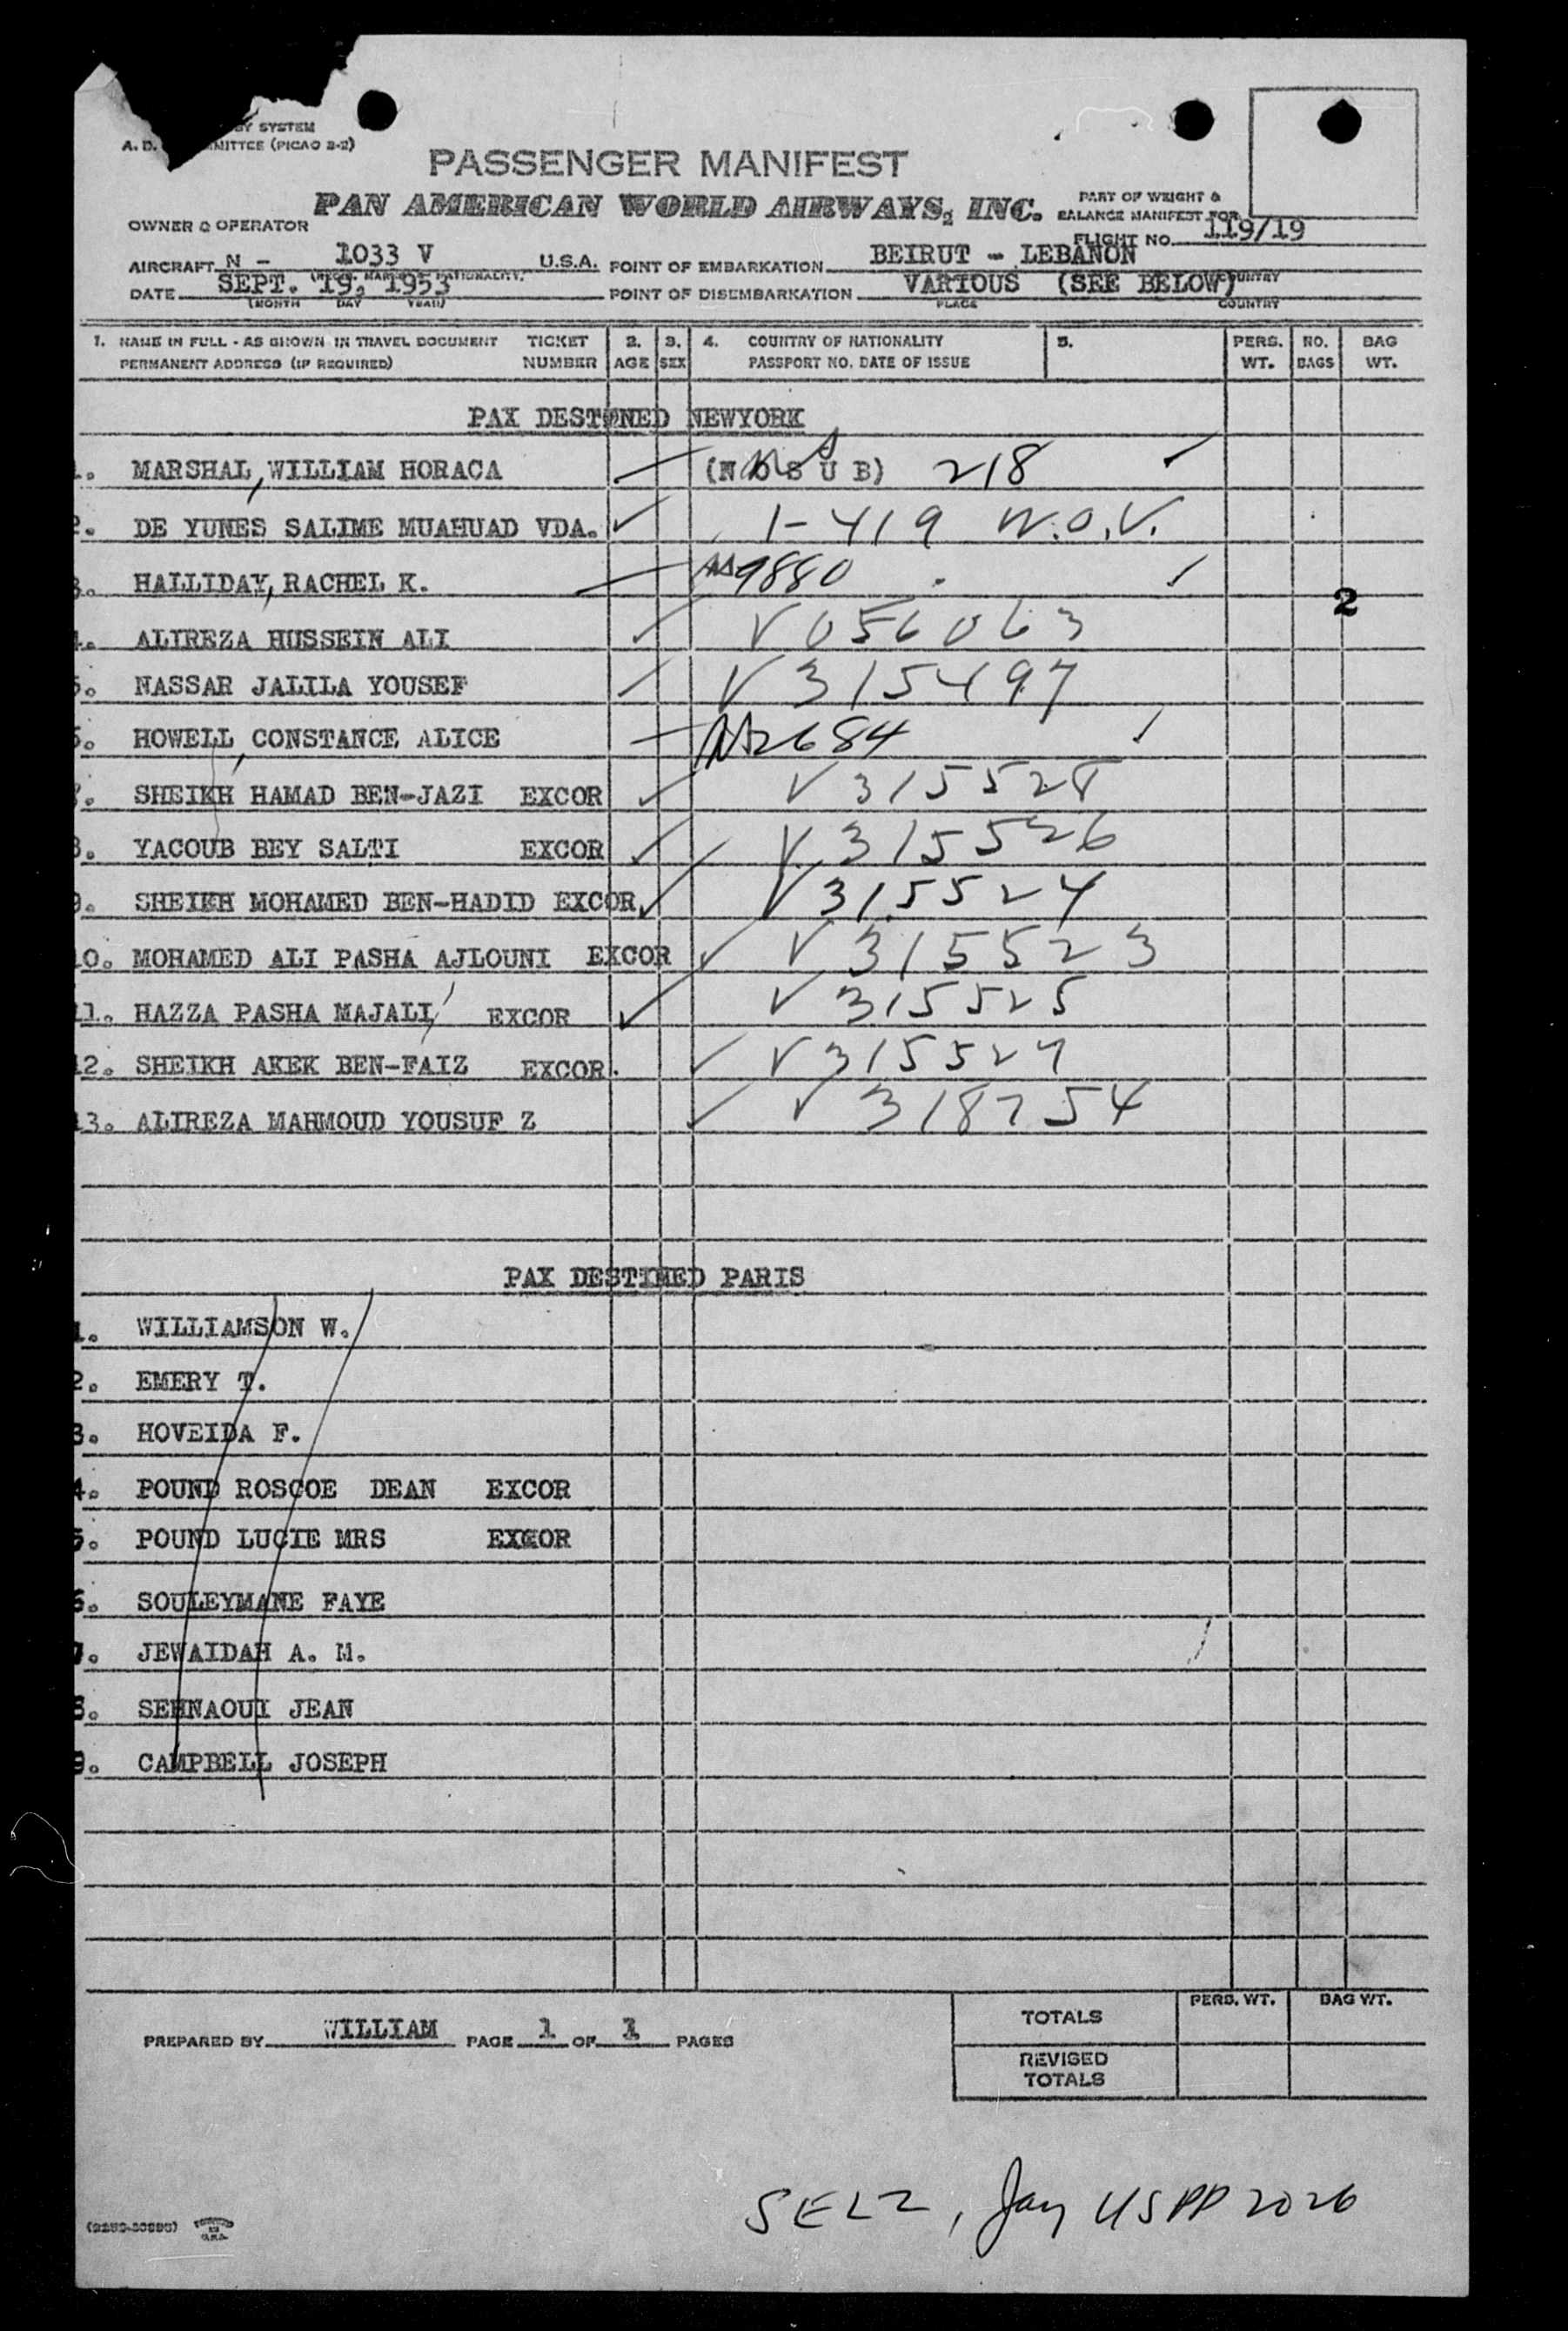 BY SYSTEM
A. D. MITTEE (PICAO 2-2)
PASSENGER MANIFEST
PAN AMERICAN WORLD AIRWAYS, INC.
PART OF WEIGHT &
BALANCE MANIFEST FOR
OWNER & OPERATOR
FLIGHT NO. 119/19
AIRCRAFT N - 1033 V U.S.A. POINT OF EMBARKATION BEIRUT - LEBANON
DATE SEPT. 19, 1953 POINT OF DISEMBARKATION VARIOUS (SEE BELOW)
(MONTH DAY YEAR) PLACE COUNTRY
1. NAME IN FULL - AS SHOWN IN TRAVEL DOCUMENT TICKET 2. 3. 4. COUNTRY OF NATIONALITY 5. PERS. NO. BAG
PERMANENT ADDRESS (IF REQUIRED) NUMBER AGE SEX PASSPORT NO. DATE OF ISSUE WT. BAGS WT.
PAX DESTINED NEWYORK
1. MARSHAL, WILLIAM HORACA (N O S U B) 218
2. DE YUNES SALIME MUAHUAD VDA. 1-419 W.O.V.
3. HALLIDAY, RACHEL K. 9880
2
4. ALIREZA HUSSEIN ALI V 056063
5. NASSAR JALILA YOUSEF V 315497
6. HOWELL, CONSTANCE ALICE 2684
7. SHEIKH HAMAD BEN-JAZI EXCOR V 315528
8. YACOUB BEY SALTI EXCOR V 315526
9. SHEIKH MOHAMED BEN-HADID EXCOR V 315524
10. MOHAMED ALI PASHA AJLOUNI EXCOR V 315523
11. HAZZA PASHA MAJALI EXCOR V 315525
12. SHEIKH AKEK BEN-FAIZ EXCOR. V 315527
13. ALIREZA MAHMOUD YOUSUF Z V 318754
PAX DESTINED PARIS
1. WILLIAMSON W.
2. EMERY T.
3. HOVEIDA F.
4. POUND ROSCOE DEAN EXCOR
5. POUND LUCIE MRS EXCOR
6. SOULEYMANE FAYE
7. JEWAIDAH A. M.
8. SEHNAOUI JEAN
9. CAMPBELL JOSEPH
PERS. WT. BAG WT.
TOTALS
PREPARED BY WILLIAM PAGE 1 OF 1 PAGES
REVISED
TOTALS
SELZ, Jay USPP 2026